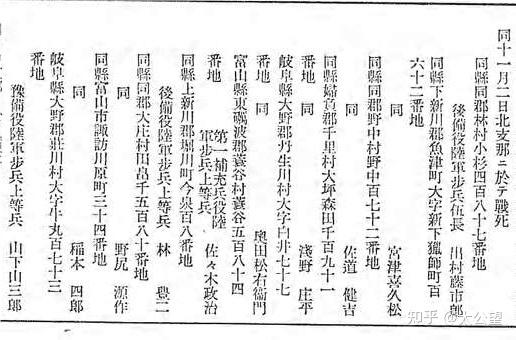 同十一月二日北支那ニ於テ戰死
同縣同郡林村小杉四百八十七番地
後備役陸軍步兵伍長 出村藤市郎
同縣下新川郡魚津町大字新下獵師町百
六十二番地
同 宮津喜久松
同縣同郡野中村野中百七十二番地
同 佐道健吉
同縣婦負郡千里村大坪森田千百九十一
番地 同 淺野庄平
岐阜縣大野郡丹生川村大字白井七十七
番地 同 奥田松右衞門
富山縣東礪波郡蓑谷村蓑谷五百八十四
番地 第一補充兵役陸軍步兵上等兵 佐々木政治
同縣上新川郡堀川町今泉百八番地
後備役陸軍步兵上等兵 林豊二
同縣同郡大庄村田畠千五百八十番地
同 野尻源作
同縣富山市諏訪川原町三十四番地
同 稲本四郎
岐阜縣大野郡莊川村大字牛丸百七十三
番地
豫備役陸軍步兵上等兵 山下山三郎
知乎 @太公望